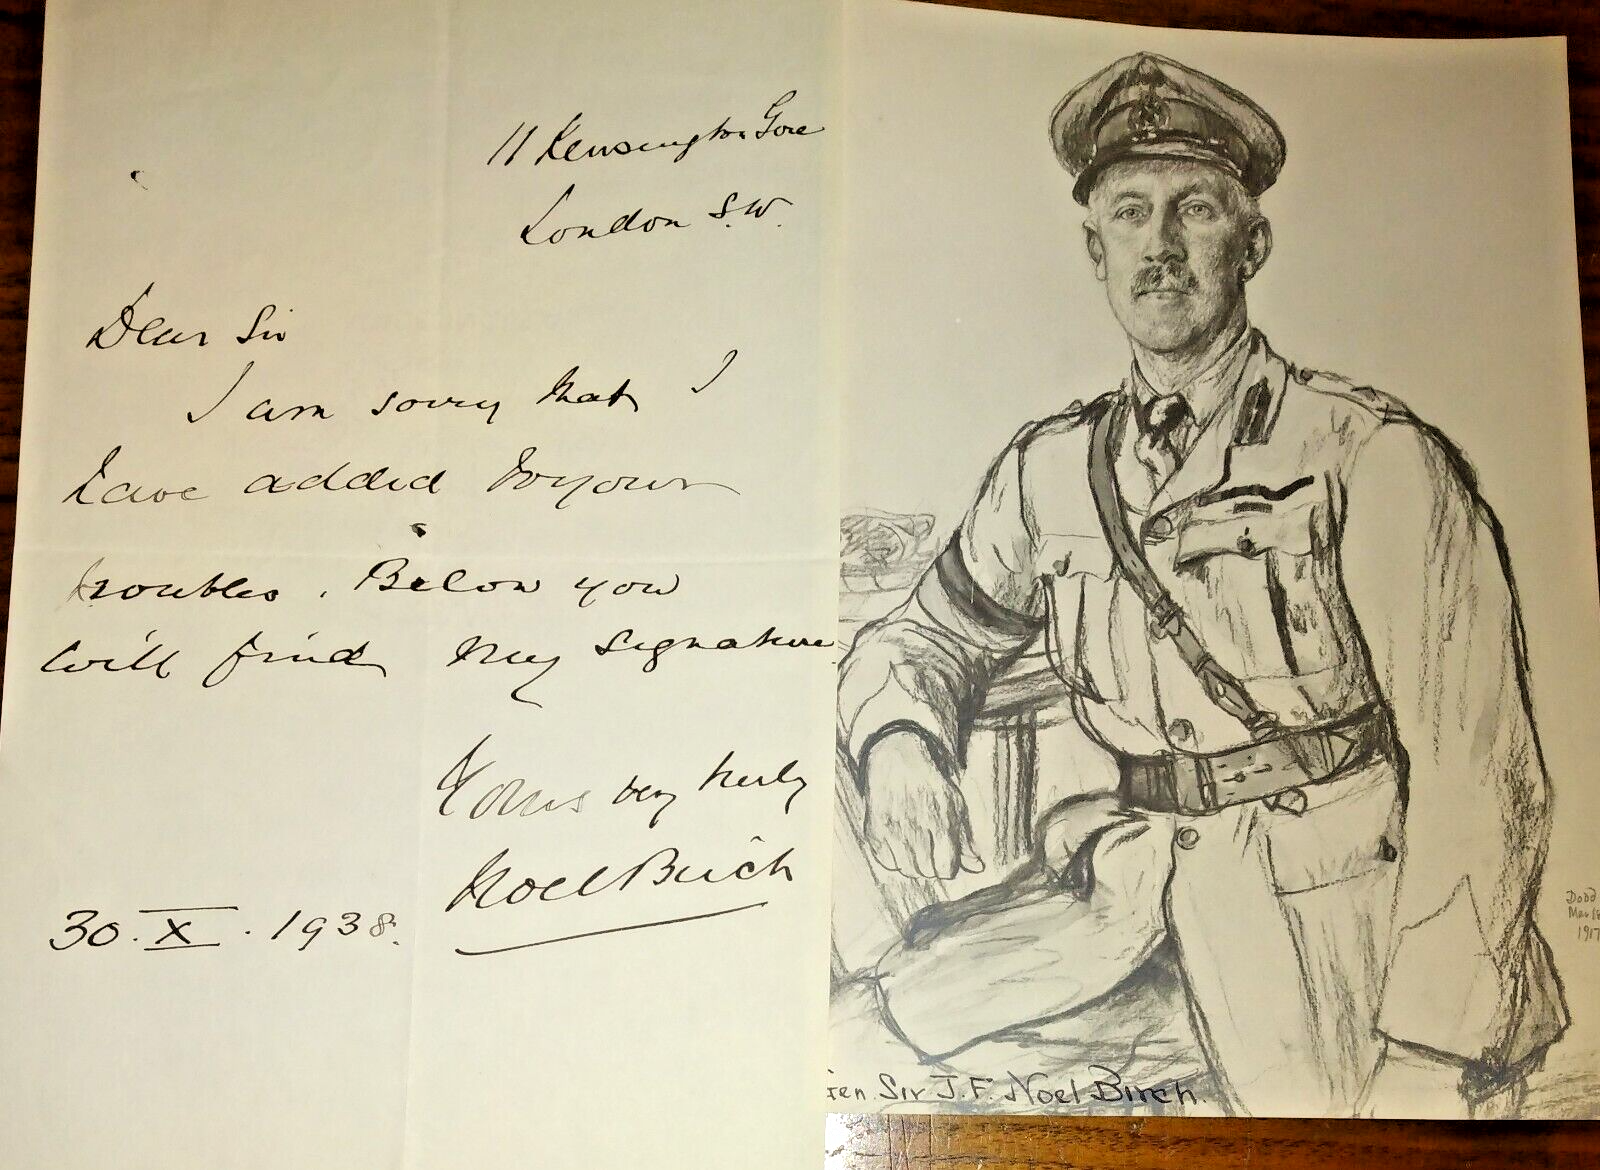 11 Kensington Gore
London S.W.
Dear Sir
I am sorry that I
have added to your
troubles. Below you
will find my signature
Yours very truly
Noel Birch
30.X.1938.
Dodd
Mar 18
1917
Gen. Sir J.F. Noel Birch.